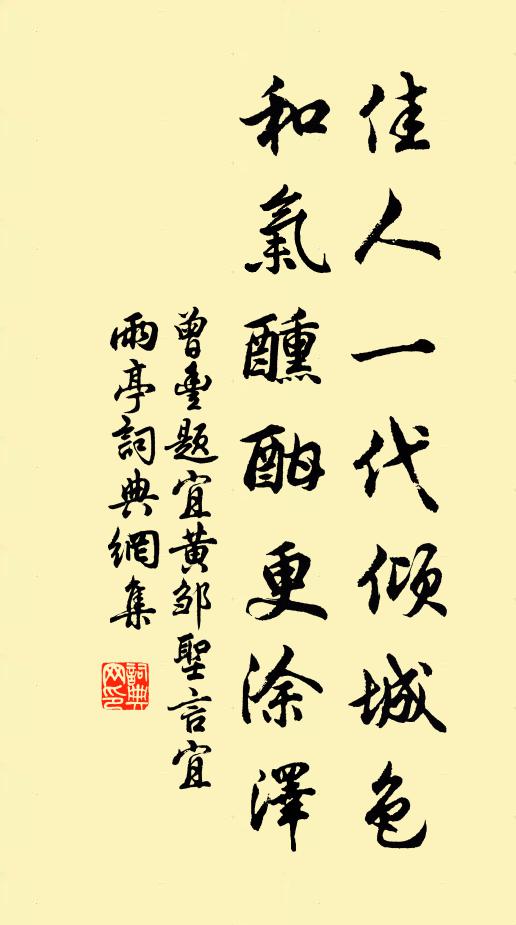 佳人一代倾城色
和氣醺酣更涂澤
曾豊题宜黄邹聖言宜
雨亭詞典網集
詞典網印